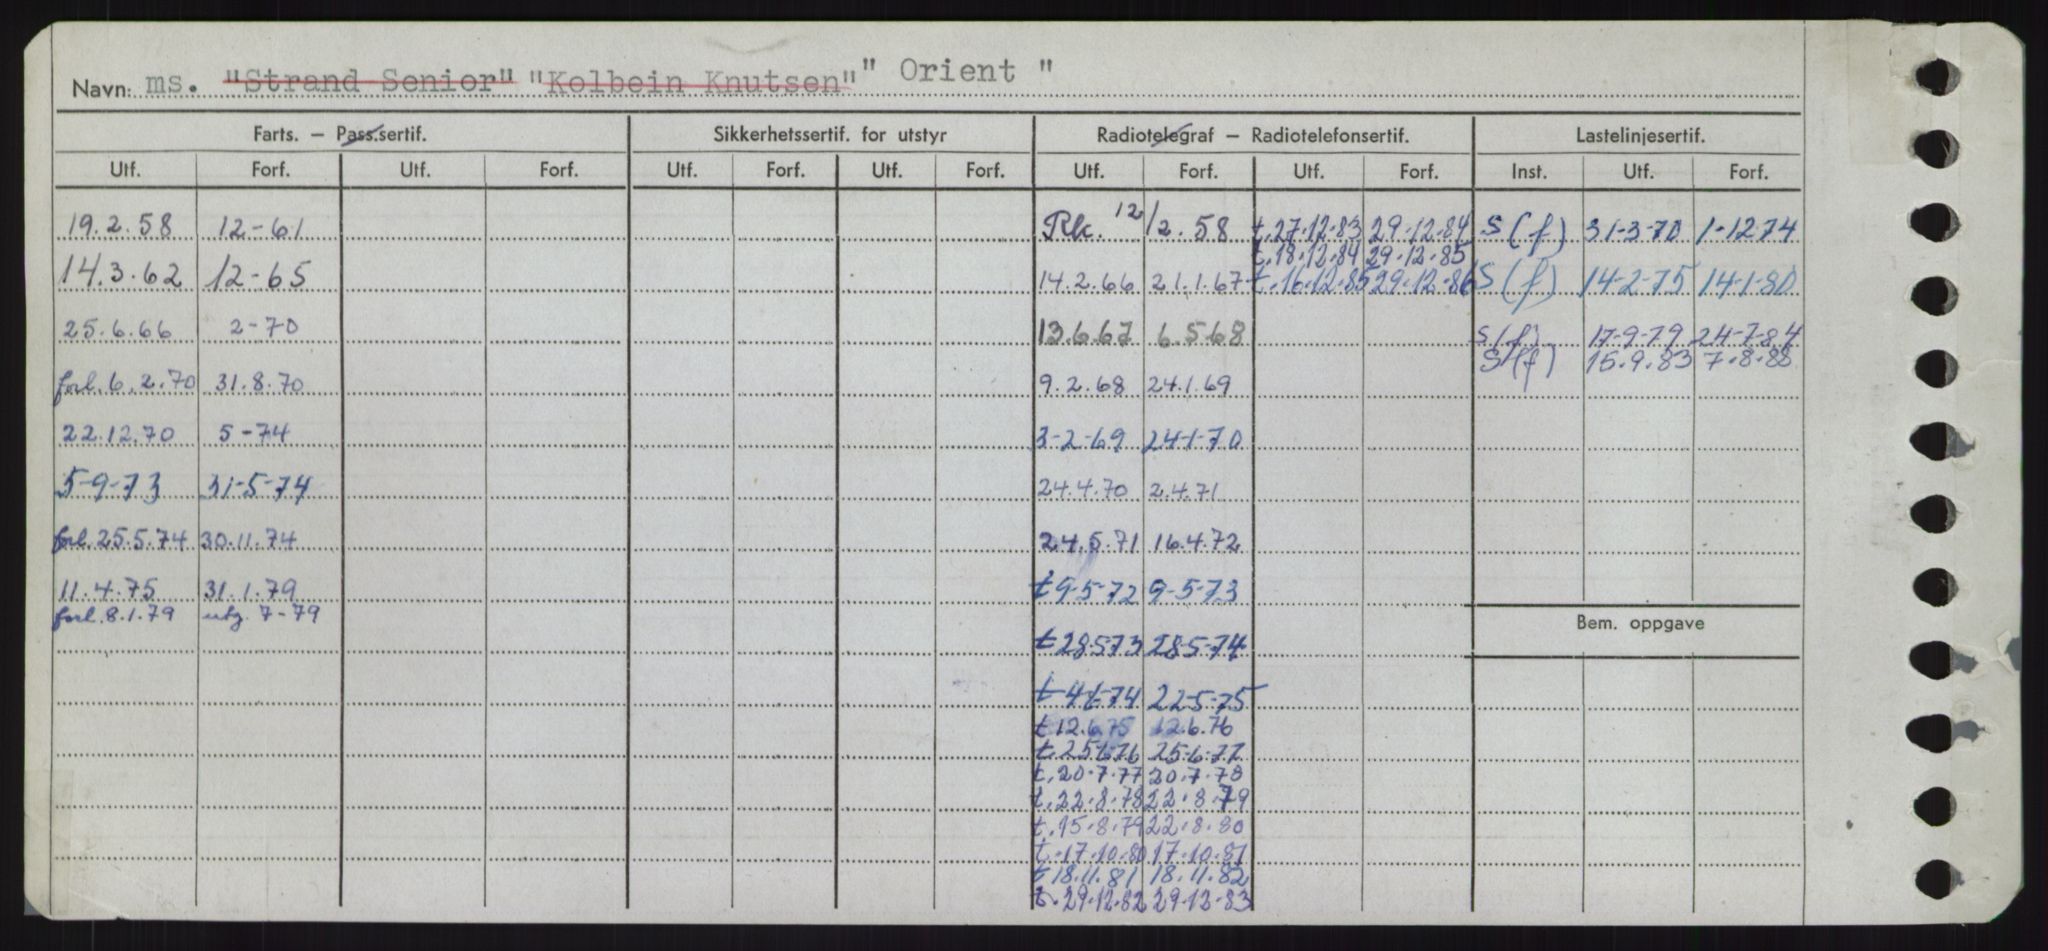 Navn: ms. "Strand Senior" "Kolbein Knutsen" " Orient "
Farts. – Pass.sertif. Sikkerhetssertif. for utstyr Radiotelegraf – Radiotelefonsertif. Lastelinjesertif.
Utf. Forf. Utf. Forf. Utf. Forf. Utf. Forf. Utf. Forf. Utf. Forf. Inst. Utf. Forf.
19.2.58 12-61 Rk. 12/2.58 t.27.12.83 29.12.84 S(f) 31-3-70 1-12-74
t.18.12.84 29.12.85
14.3.62 12-65 14.2.66 21.1.67 t.16.12.85 29.12.86 S(f) 14-2-75 14-1-80
25.6.66 2-70 13.6.67 6.5.68 S(f) 17-9-79 24-7-84
S(f) 15.9.83 7.8.88
forl. 6.2.70 31.8.70 9.2.68 24.1.69
22.12.70 5-74 3-2-69 24-1-70
5-9-73 31-5-74 24.4.70 2.4.71
forl. 25.5.74 30.11.74 24.5.71 16.4.72
11.4.75 31.1.79 t 9-5-72 9-5-73
forl. 8.1.79 utg. 7-79
Bem. oppgave
t 28.5.73 28-5-74
22-5-75
t 12.6.75 12.6.76
t.25.6.76 25.6.77
t.20.7.77 20.7.78
t.22.8.78 22.8.79
t.15.8.79 22.8.80
t.17.10.80 17.10.81
t 18.11.81 18.11.82
t.29.12.82 29.12.83